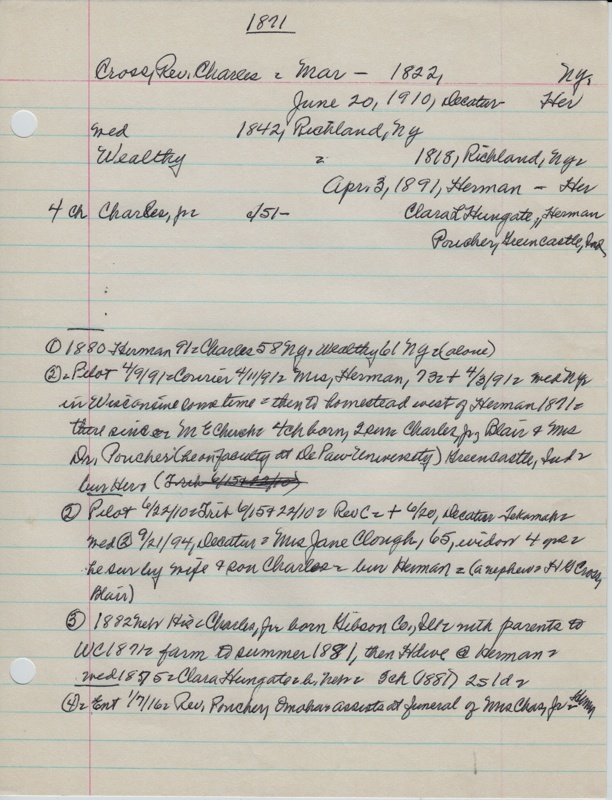 1871
Cross, Rev. Charles = Mar — 1822, Ny,
June 20, 1910, Decatur - Her
med 1842, Richland, Ny
Wealthy = 1818, Richland, Ny=
Apr. 3, 1891, Herman — Her
4 ch Charles, jr c/51- Clara L Hungate,, Herman
Poucher, Greencastle, Ind,
① 1880 Herman 91= Charles 58 Ny, Wealthy 61 Ny= (alone)
②= Pilot 4/9/91= Courier 4/11/91= Mrs, Herman, 73= + 4/3/91= med Ny=
in Wisconsin some time = then to homestead west of Herman 1871=
there since = M E Church= 4 ch born, 2 surv Charles, jr, Blair & Mrs
Dr, Poucher (he on faculty at De Paw University) Greencastle, Ind=
bur Her= (Trib 6/15+22/10)
② Pilot 6/22/10= Trib 6/15+22/10= Rev C= + 6/20, Decatur - Tekamah=
med @ 9/21/94, Decatur = Mrs Jane Clough, 65, widow 4 yrs=
he sur by wife & son Charles= bur Herman = (a nephew= H Cross,
Blair)
③ 1882 Nebr His= Charles, Jr born Gibson Co., Ill= with parents to
WC 1871= farm to summer 1881, then Hdwe @ Herman=
med 1875= Clara Hungate= b. New= 3ch (1881) 2s 1d=
④= Ent 1/7/16= Rev. Poucher, Omaha= assists at funeral of Mrs Chas, Jr= Herm